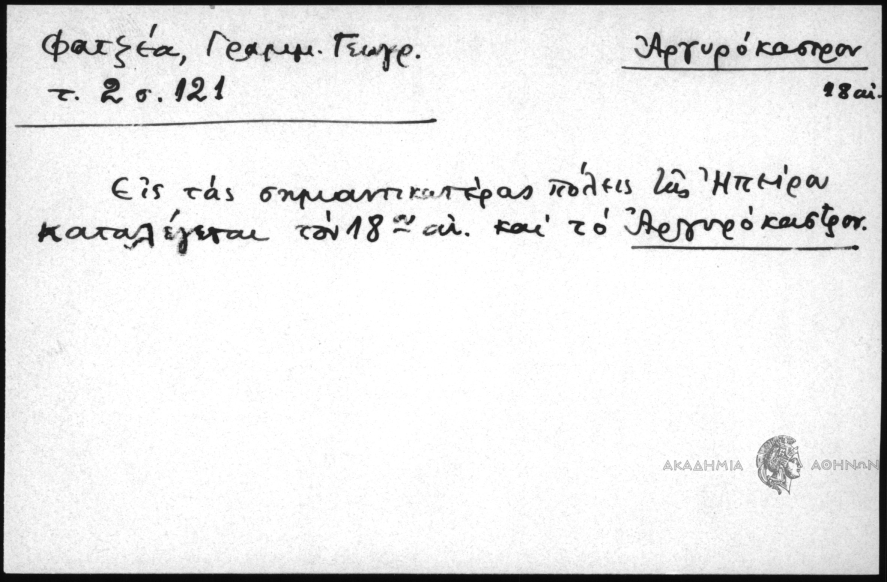 Φατζέα, Γραμμ. Γεωγρ.
τ. 2 σ. 121
Ἀργυρόκαστρον
18 αἰ.
Εἰς τάς σημαντικωτέρας πόλεις τῆς Ἠπείρου
καταλέγεται τόν 18ον αἰ. καί τό Ἀργυρόκαστρον.
ΑΚΑΔΗΜΙΑ ΑΘΗΝΩΝ